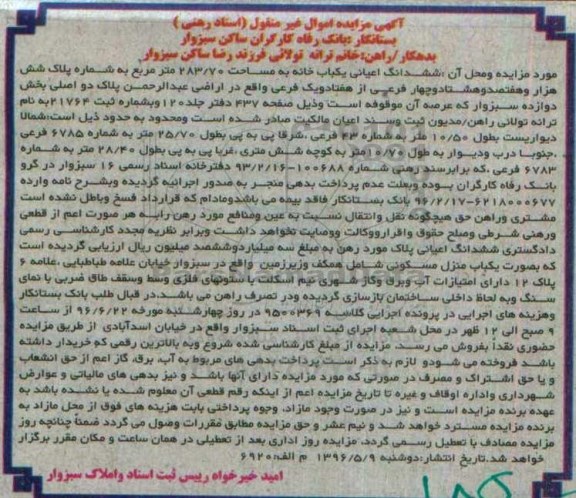 آگهی مزایده اموال غیر منقول (اسناد رهنی)
بستانکار :بانک رفاه کارگران ساکن سبزوار
بدهکار/راهن:خانم ترانه تولائی فرزند رضا ساکن سبزوار
مورد مزایده ومحل آن :ششدانگ اعیانی یکباب خانه به مساحت ۲۸۳/۷۰ متر مربع به شماره پلاک شش
هزار وهفتصدوهشتادوچهار فرعی از هفتادویک فرعی واقع در اراضی عبدالرحمن پلاک دو اصلی بخش
دوازده سبزوار که عرصه آن موقوفه است وذیل صفحه ۴۳۷ دفتر جلد۱۲۰ وبشماره ثبت ۲۱۷۶۴ به نام
ترانه تولائی راهن/مدیون ثبت وسند اعیان مالکیت صادر شده است ومحدود به حدود ذیل است:شمالا
دیواریست بطول ۱۰/۵۰ متر به شماره ۴۳ فرعی ،شرقا پی به پی بطول ۲۵/۷۰ متر به شماره ۶۷۸۵ فرعی
،جنوبا درب ودیوار به طول متر به کوچه شش متری ،غربا پی به پی بطول ۲۸/۴۰ متر به شماره
۶۷۸۳ فرعی ،که برابرسند رهنی شماره ۱۰۰۶۸۸-۹۳/۲/۱۶ دفترخانه اسناد رسمی ۱۶ سبزوار در گرو
بانک رفاه کارگران بوده وبعلت عدم پرداخت بدهی منجر به صدور اجرائیه گردیده وبشرح نامه وارده
۶۲۱۸۰۰۰۶۷۷-۹۶/۲/۱۷ بانک بستانکار فاقد بیمه می باشدومادام که قرارداد فسخ وباطل نشده است
مشتری وراهن حق هیچگونه نقل وانتقال نسبت به عین ومنافع مورد رهن رابه هر صورت اعم از قطعی
ورهنی شرطی وصلح حقوق واقرارووکالت ووصایت نخواهد داشت وبرابر نظریه مجدد کارشناسی رسمی
دادگستری ششدانگ اعیانی پلاک مورد رهن به مبلغ سه میلیاردوششصد میلیون ریال ارزیابی گردیده است
که بصورت یکباب منزل مسکونی شامل همکف وزیرزمین و واقع در سبزوار خیابان علامه طباطبایی ،علامه ۶
پلاک ۱۲ دارای امتیازات آب وبرق وگاز شهری نیم اسکلت با ستونهای فلزی وسط وسقف طاق ضربی با نمای
سنگ وبه لحاظ داخلی ساختمان بازسازی گردیده ودر تصرف راهن می باشد.در قبال طلب بانک بستانکار
وهزینه های اجرایی در پرونده اجرایی کلاسه ۹۵۰۰۳۶۹ در روز چهارشنبه مورخه ۹۶/۶/۲۲ از ساعت
۹ صبح الی ۱۲ ظهر در محل شعبه اجرای ثبت اسناد سبزوار واقع در خیابان اسدآبادی از طریق مزایده
حضوری نقدا بفروش می رسد. مزایده از مبلغ کارشناسی شده شروع وبه بالاترین رقمی که خریدار داشته
باشد فروخته می شودو لازم به ذکر است پرداخت بدهی های مربوط به آب، برق، گاز اعم از حق انشعاب
و یا حق اشتراک و مصرف در صورتی که مورد مزایده دارای آنها باشد و نیز بدهی های مالیاتی و عوارض
شهرداری واداره اوقاف و غیره تا تاریخ مزایده اعم از اینکه رقم قطعی آن معلوم شده یا نشده باشد به
عهده برنده مزایده است و نیز در صورت وجود مازاد، وجوه پرداختی بابت هزینه های فوق از محل مازاد به
برنده مزایده مسترد خواهد شد و نیم عشر و حق مزایده مطابق مقررات وصول می گردد ضمناً چنانچه روز
مزایده مصادف با تعطیل رسمی گردد، مزایده روز اداری بعد از تعطیلی در همان ساعت و مکان مقرر برگزار
خواهد شد.تاریخ انتشار:دوشنبه ۱۳۹۶/۵/۹ م الف:۶۹۲۰
امید خیرخواه رییس ثبت اسناد واملاک سبزوار